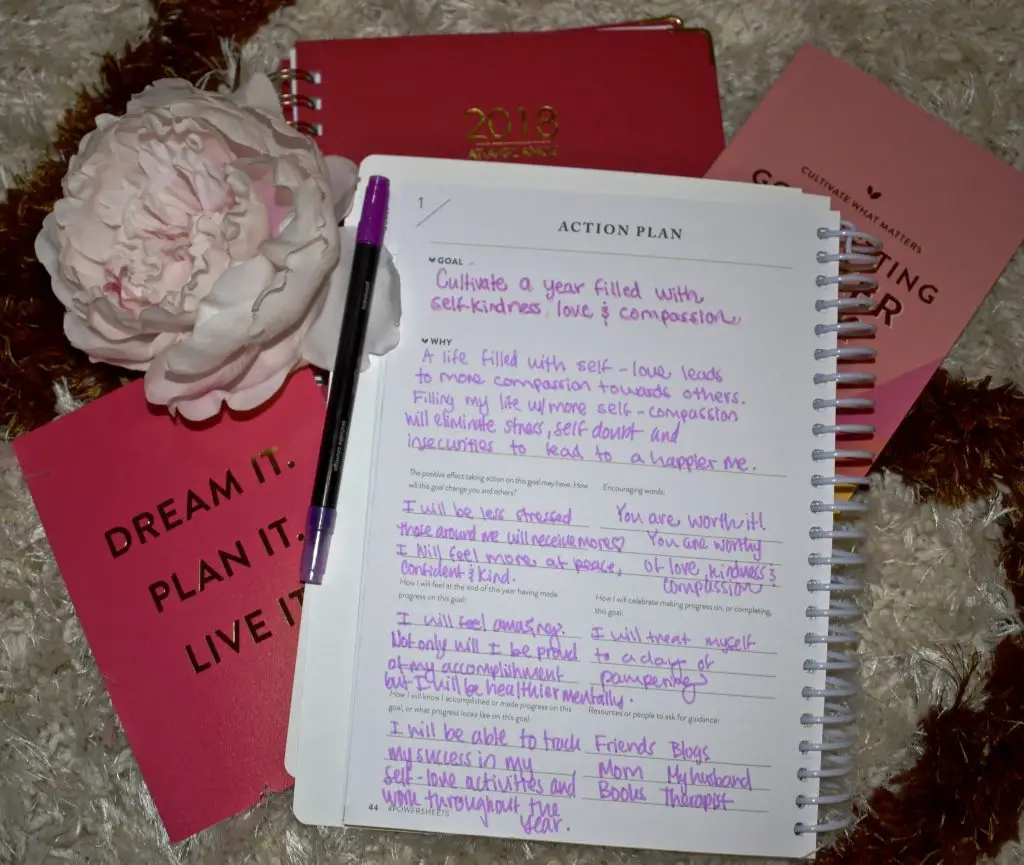 2018
AT-A-GLANCE
CULTIVATE WHAT MATTERS
DREAM IT.
PLAN IT.
LIVE IT
1
ACTION PLAN
GOAL
Cultivate a year filled with
self-kindness, love & compassion
WHY
A life filled with self-love leads
to more compassion towards others.
Filling my life w/more self-compassion
will eliminate stress, self doubt and
insecurities to lead to a happier me.
The positive effect taking action on this goal may have. How
will this goal change you and others?
I will be less stressed
those around me will receive more♡
I will feel more at peace,
confident & kind.
Encouraging words:
You are worth it!
You are worthy
of love, kindness &
compassion
How I will feel at the end of this year having made
progress on this goal:
I will feel amazing.
Not only will I be proud
of my accomplishment
but I will be healthier mentally.
How I will celebrate making progress on, or completing,
this goal:
I will treat myself
to a day of
pampering
How I will know I accomplished or made progress on this
goal, or what progress looks like on this goal:
I will be able to track
my success in my
self-love activities and
work throughout the
year.
Resources or people to ask for guidance:
Friends Blogs
Mom My husband
Books Therapist
44 #POWERSHEETS